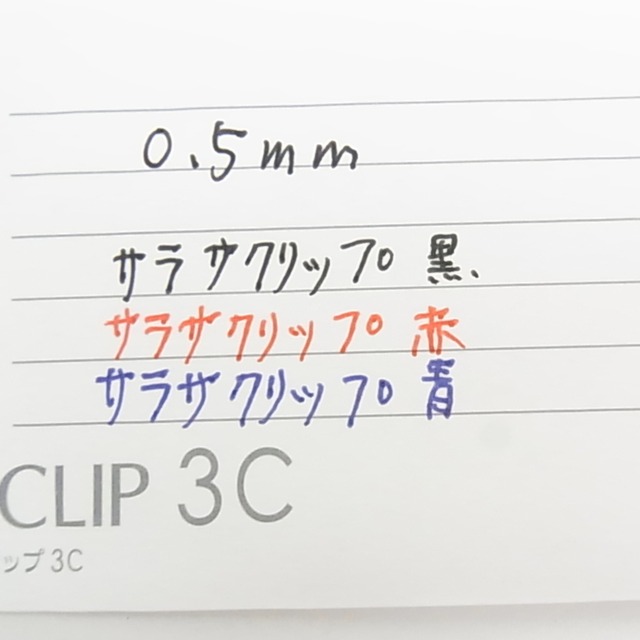 0.5mm
サラサクリップ 黒、
サラサクリップ 赤
サラサクリップ 青
CLIP 3C
ップ 3C